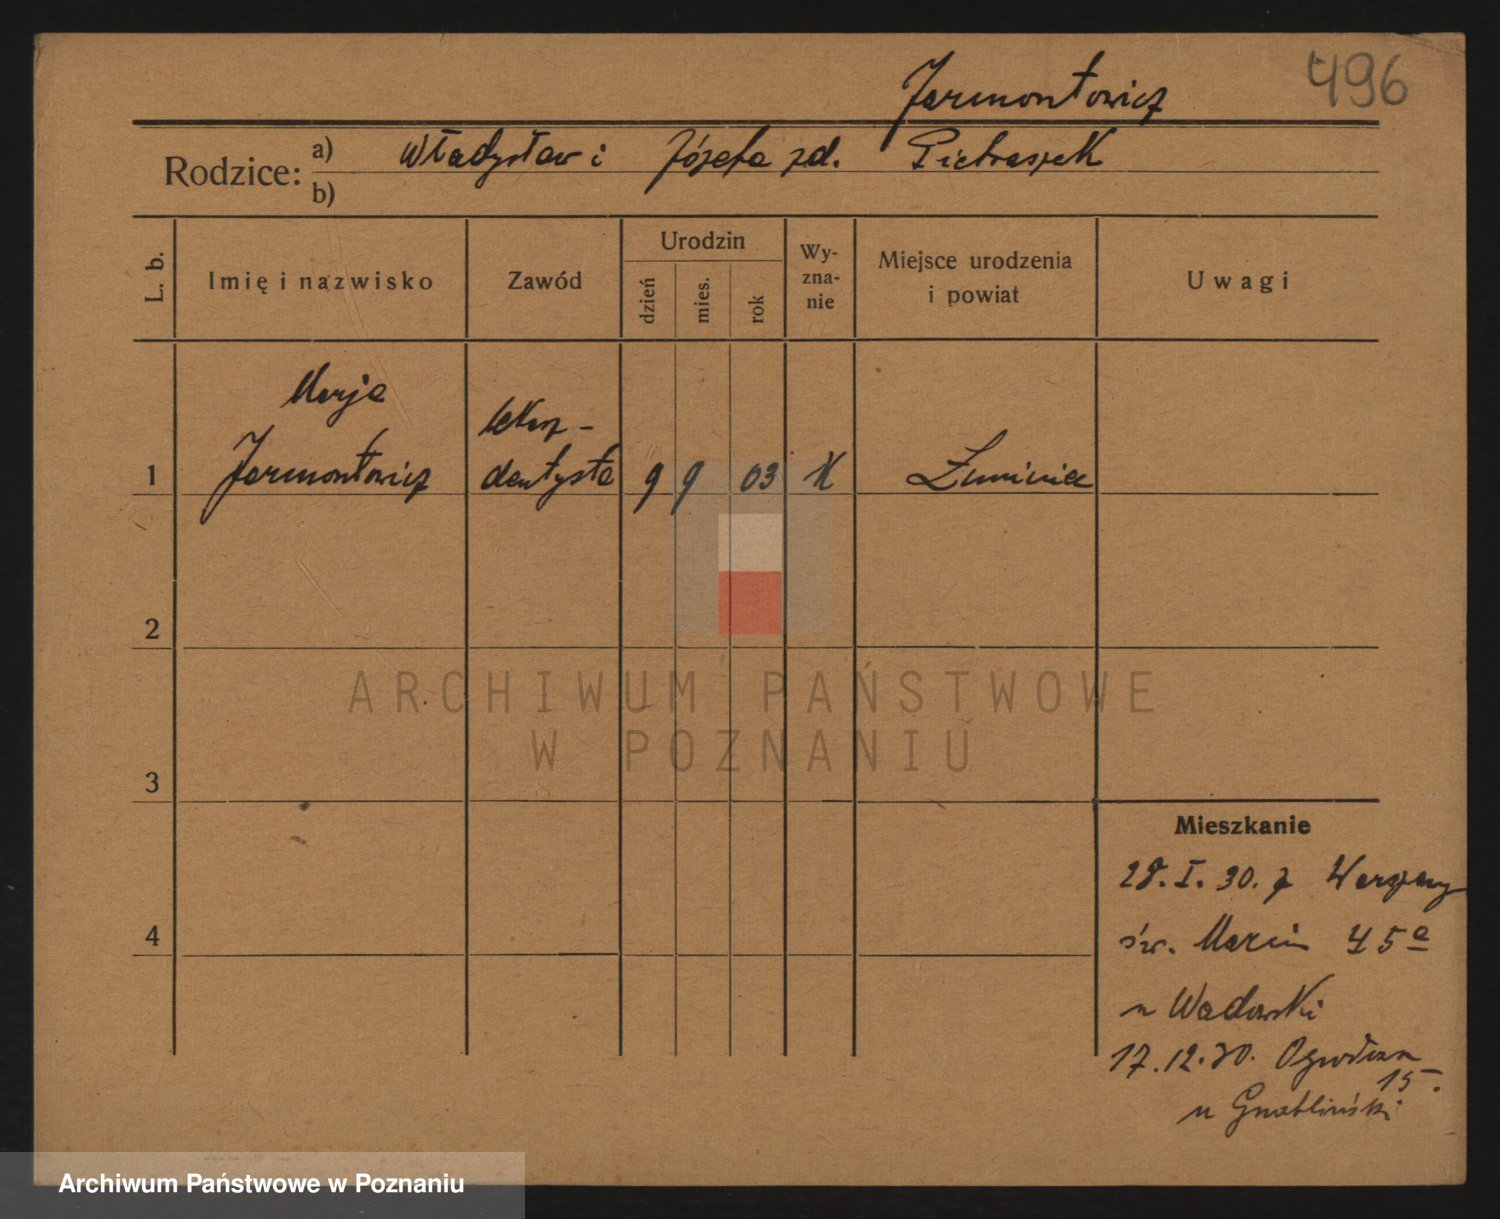 Jarmontowicz 496
Rodzice: a) Władysław i Józefa zd. Pietraszek
b)
L. b. Imię i nazwisko Zawód Urodzin dzień mies. rok Wy-zna-nie Miejsce urodzenia i powiat Uwagi
Marja
lekarz-
1 Jarmontowicz dentysta 9 9 03
2
ARCHIWUM PAŃSTWOWE
W POZNANIU
3
Mieszkanie
28. I. 30. z Warszawy
4 św. Marcin 45a
u Wadowski
17.12.30. Ogrodowa
15.
u
Archiwum Państwowe w Poznaniu